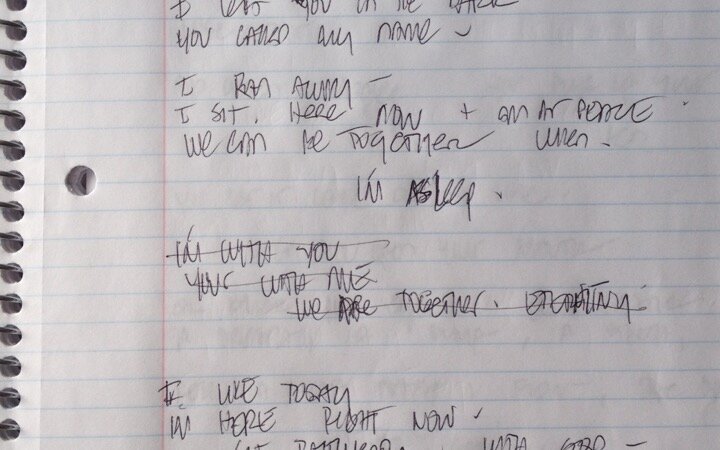 YOU CALLED MY NAME
I RAN AWAY —
I SIT. HERE NOW + AM AT PEACE.
WE CAN BE TOGETHER WHEN.
I'M ASLEEP.
I'M WITH YOU
YOUR WITH ME
WE ARE TOGETHER.
I LIKE TODAY
I'M HERE RIGHT NOW -
WITH